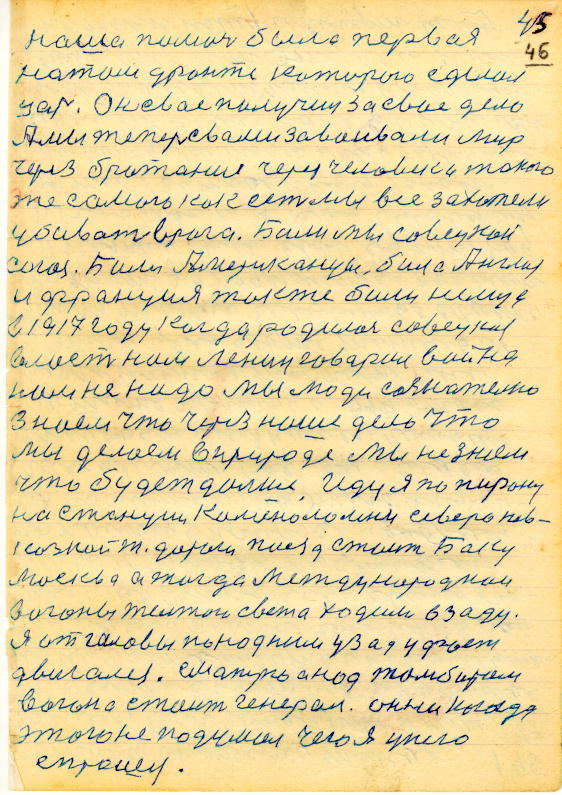 45
46
наша помоч была первая
натом фронте которого сделал
цар. Он свае получил за свое дело
А мы теперсвами завоивали мир
через братание через человика такого
же самого как есть мы все захотели
убиват врага. Были мы совецкой
союз. Были Американцы, была Англия
и франция также были немцы
в 1917 году когда родилас совецкая
власт нам Ленин говарил война
нам не надо мы люди сознателно
знаем что через наше дело что
мы делаем в природе мы незнаем
что будетдалше. Иду я по пирону
на станции Каменоломни северо кав-
козкой ж. дороги поезд стоит Баку
Москва а тогда международнои
вогоны желтои света ходили взаду.
Я отгаловы поиоднИм узаду фост
двигался. сматрю а над тамбурам
вогона стоит генерал. он никогда
этогоне подумал чего я унего
спрошу.